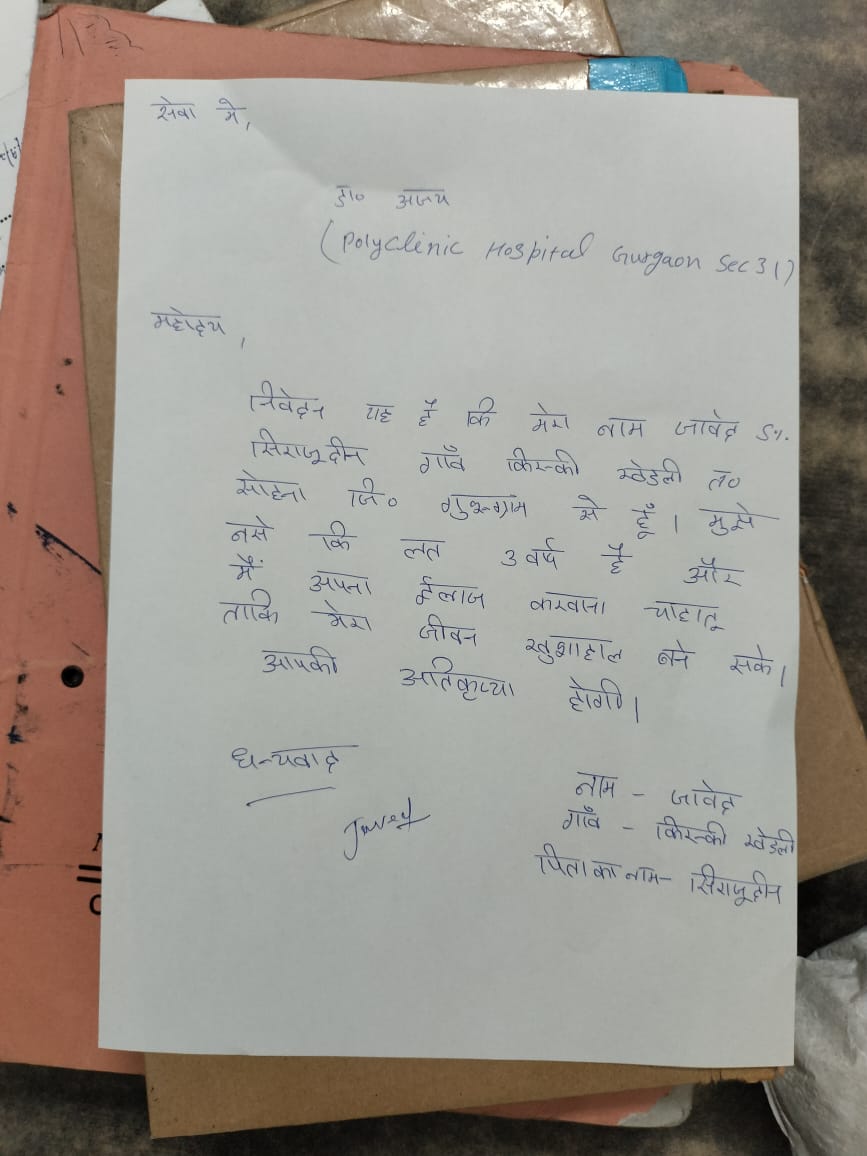 सेवा मे,
डा० अजय
(Polyclinic Hospital Gurgaon Sec 31)
महोदय,
निवेदन यह है कि मेरा नाम जावेद S/.
सिराजूदीन गाँव किरन्की खेडली त०
सोहना जि० गुरुग्राम से हूँ। मुझे
नसे कि लत 3 वर्ष है और
मैं अपना ईलाज करवाना चाहातू
ताकि मेरा जीवन खुशाहाल बने सके।
आपकी अतिकृप्या होगी।
धन्यवाद
Javed
नाम - जावेद
गाँव - किरन्की खेडली
पिता का नाम- सिराजूदीन